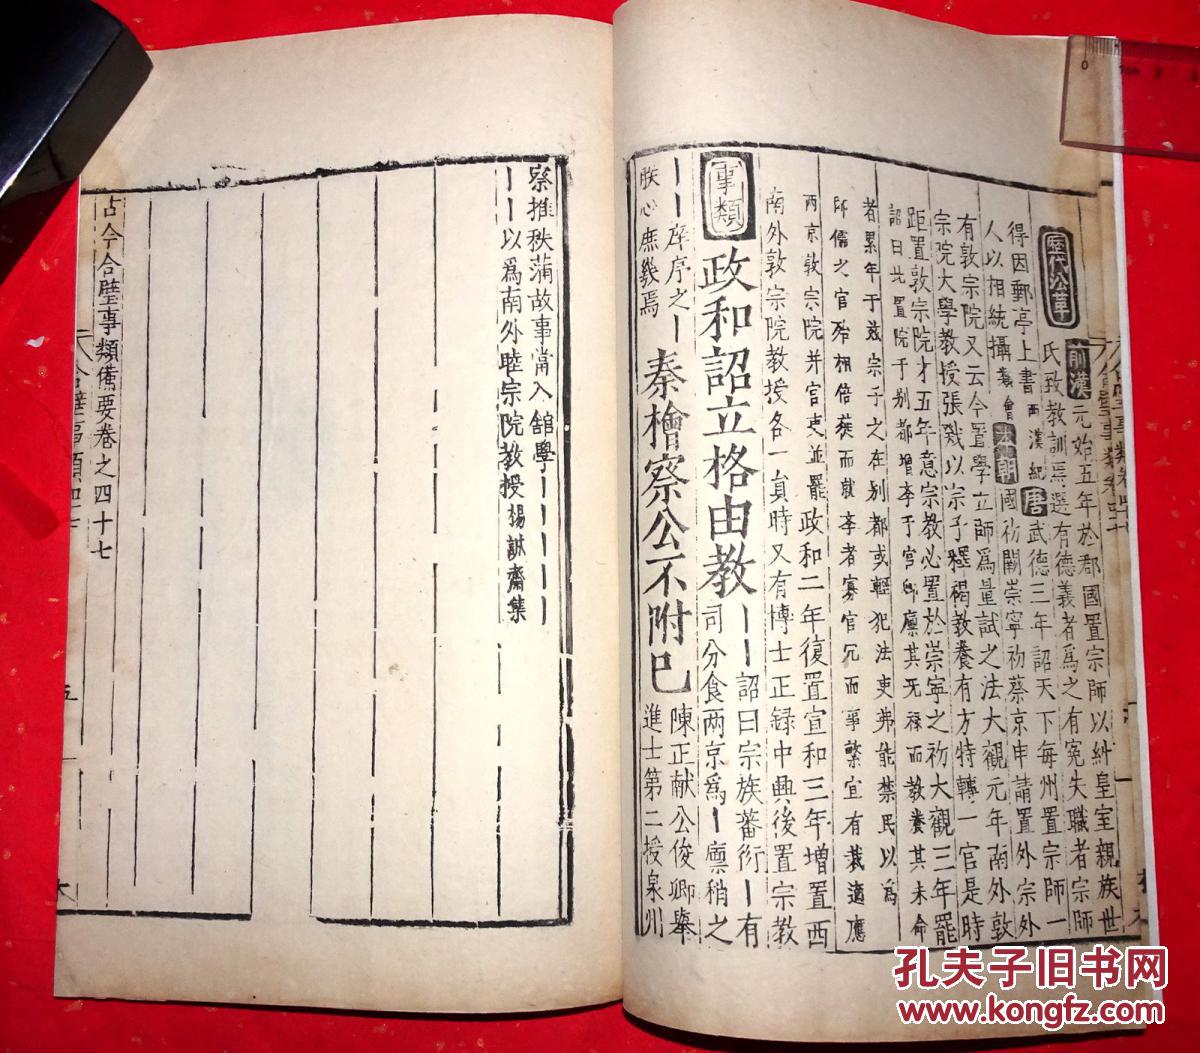 歷代沿革
前漢元始五年於郡國置宗師以糾皇室親族世
氏致教訓焉選有德義者爲之有冤失職者宗師
得因郵亭上書西漢紀唐武德三年詔天下每州置宗師一
人以相統攝會本朝國初闕崇寧初蔡京申請置外宗外
有敦宗院又云今置學立師爲量試之法大觀元年南外敦
宗院大學教授張戩以宗子釋褐教養有方特轉一官是時
距置敦宗院才五年意宗教必置於崇寧之初大觀三年罷
詔曰比置院于别都增李于官師廪其无祿而教養其未命
者累年于兹宗子之在别都或輕犯法吏弗能禁民以爲
師儒之官殆相倍蓰而就李者寡官冗而事繁宜有裁適應
兩京敦宗院并官吏並罷政和二年復置宣和三年增置西
南外敦宗院教授各一員時又有博士正録中興後置宗教
事類
政和詔立格由教丨丨詔曰宗族蕃衍丨有
司分食两京爲丨廪稍之
丨丨庠序之丨
秦檜察公不附已
陳正献公俊卿舉
朕心庶幾焉
進士第二授泉州
察推秩蒲故事當入舘學丨丨丨丨丨
丨丨以爲南外睦宗院教授楊誠齋集
古今合璧事類備要卷之四十七
五
孔夫子旧书网
www.kongfz.com